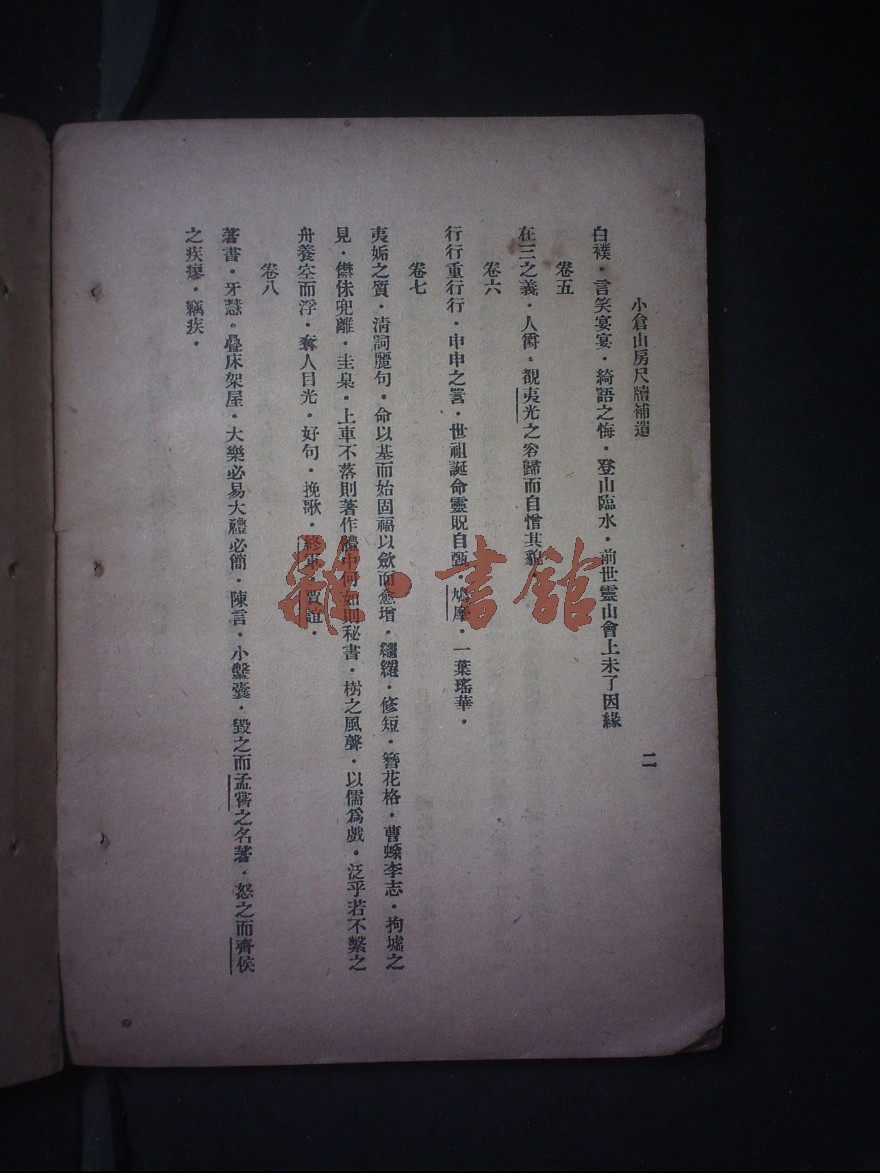 小倉山房尺牘補遺
二
白襆．言笑宴宴．綺語之悔．登山臨水．前世靈山會上未了因緣
卷五
在三之義．人爵．覩夷光之容歸而自憎其貌．
卷六
行行重行行．申申之詈．世祖誕命靈貺自甄．鳩摩．一葉瑤華．
卷七
夷姤之質．淸詞麗句．命以基而始固福以歛而愈增．繾綣．修短．簪花格．曹蜍李志．拘墟之
見．僸佅兜離．圭臬．上車不落則著作體中何如則秘書．樹之風聲．以儒爲戲．泛乎若不繫之
舟養空而浮．奪人目光．好句．挽歌．終軍．賈誼．
卷八
著書．牙慧．疊床架屋．大樂必易大禮必簡．陳言．小鑿囊．毀之而孟嘗之名著．怒之而齊侯
之疾瘳．竊疾．
雜·書館